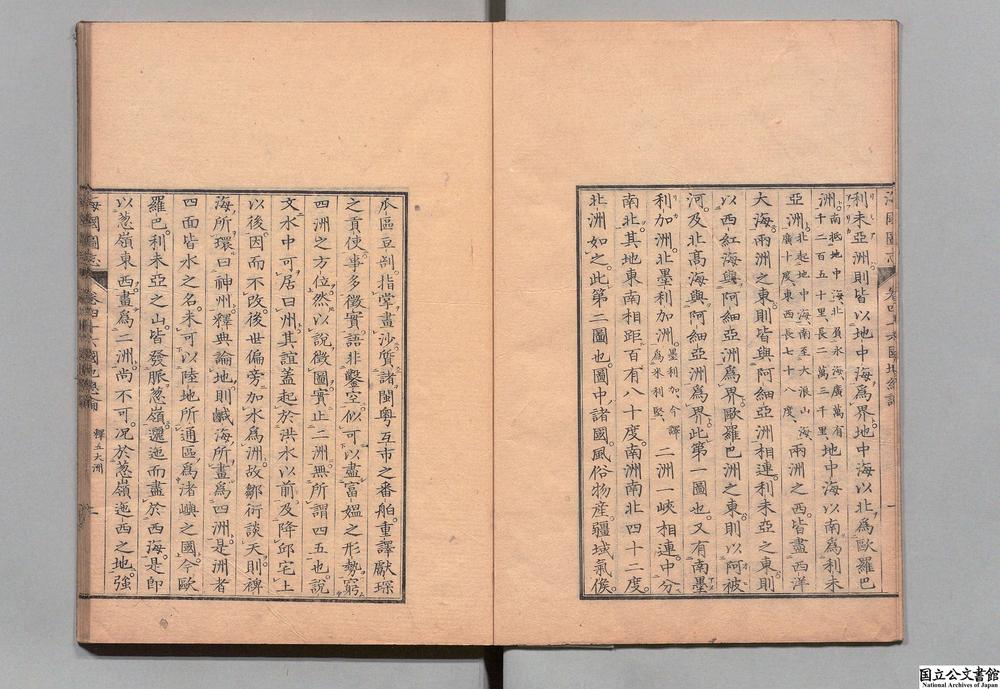 利未亞洲則皆以地中海爲界地中海以北爲歐羅巴
洲南抵地中海北負氷海廣萬有千二百五十里長二萬三千里地中海以南爲利未
亞洲北起地中海南至大浪山海廣十度東西長七十八度兩洲之西皆盡西洋
大海兩洲之東則皆與阿細亞洲相連利未亞之東則
以西紅海與阿細亞洲爲界歐羅巴洲之東則以阿被
河及北高海與阿細亞洲爲界此第一圖也又有南墨
利加洲北墨利加洲墨利加今譯爲米利堅二洲一峽相連中分
南北其地東南相距百有八十度南洲南北四十二度
北洲如之此第二圖也圖中諸國風俗物產疆域氣候
瓜區豆剖指掌畫沙質諸閩粤互市之番舶重譯獻琛
之貢使事多徵實語非鑿空似可以盡富媼之形勢窮
四洲之方位然以說徵圖實止二洲無所謂四五也說
文水中可居曰州其誼蓋起於洪水以前及降邱宅上
以後因而不改後世偏旁加水爲洲故鄒衍談天則裨
海所環曰神州釋典論地則鹹海所畫爲四洲是洲者
四面皆水之名未可以陸地所通區爲渚嶼之國今歐
羅巴利未亞之山皆發脈葱嶺邐迤而盡於西海是即
以葱嶺東西畫爲二洲尚不可况於葱嶺迤西之地强
海國圖志
釋五大洲
国立公文書館
National Archives of Japan